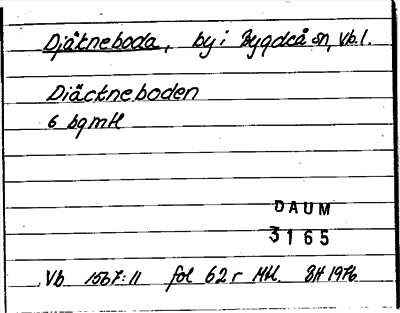 Djäkneboda, by i Bygdeå sn, Vb.l.
Diäckneboden
6 bgmtl
DAUM
3165
Vb 1567:11 fol 62 r MH. SH 1976